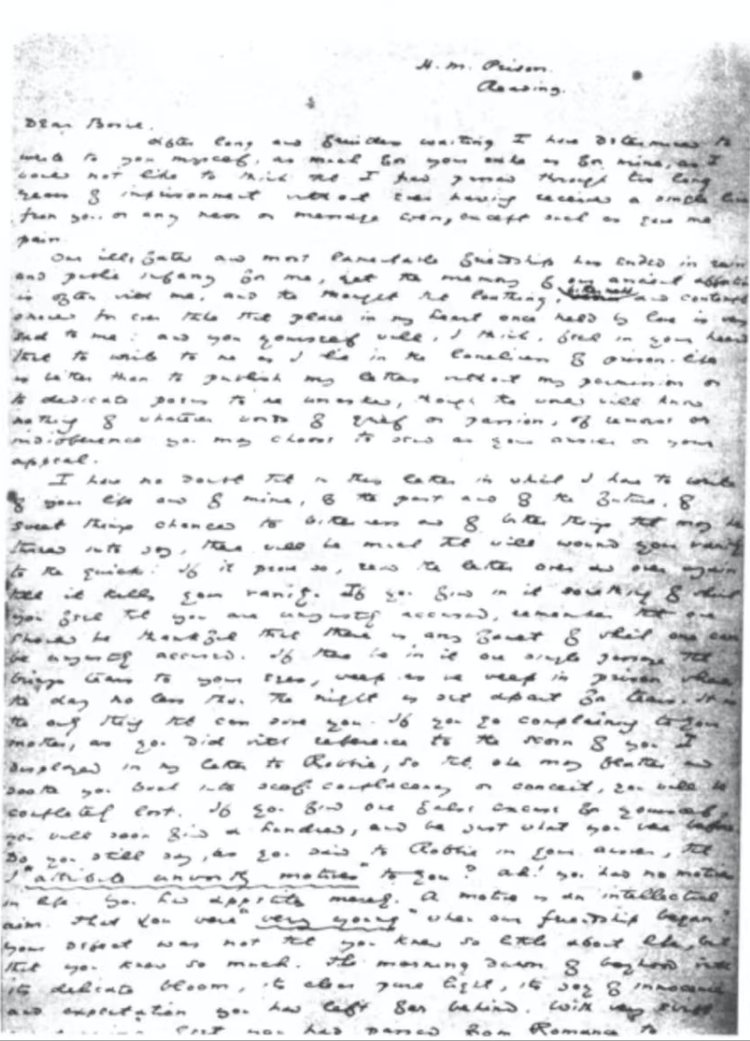 H. M. Prison.
Reading.
Dear Bosie,
After long and fruitless waiting I have determined to
write to you myself, as much for your sake as for mine, as I
would not like to think that I had passed through two long
years of imprisonment without ever having received a single line
from you, or any news or message even, except such as gave me
pain.
Our ill-fated and most lamentable friendship has ended in ruin
and public infamy for me, yet the memory of our ancient affection
is often with me, and the thought that loathing, bitterness and contempt
should for ever take that place in my heart once held by love is very
sad to me: and you yourself will, I think, feel in your heart
that to write to me as I lie in the loneliness of prison-life
is better than to publish my letters without my permission or
to dedicate poems to me unasked, though the world will know
nothing of whatever words of grief or passion, of remorse or
indifference you may choose to send as your answer or your
appeal.
I have no doubt that in this letter in which I have to write
of your life and of mine, of the past and of the future, of
sweet things changed to bitterness and of bitter things that may be
turned into joy, there will be much that will wound your vanity
to the quick. If it prove so, read the letter over and over again
till it kills your vanity. If you find in it something of which
you feel that you are unjustly accused, remember that one
should be thankful that there is any fault of which one can
be unjustly accused. If there be in it one single passage that
brings tears to your eyes, weep as we weep in prison where
the day no less than the night is set apart for tears. It is
the only thing that can save you. If you go complaining to your
mother, as you did with reference to the scorn of you I
displayed in my letter to Robbie, so that she may flatter and
soothe you back into self-complacency or conceit, you will be
completely lost. If you find one false excuse for yourself,
you will soon find a hundred, and be just what you were before.
Do you still say, as you said to Robbie in your answer, that
I "attribute unworthy motives" to you? Ah! you had no motives
in life. You had appetites merely. A motive is an intellectual
aim. That you were "very young" when our friendship began?
Your defect was not that you knew so little about life, but
that you knew so much. The morning dawn of boyhood with
its delicate bloom, its clear pure light, its joy of innocence
and expectation you had left far behind. With very swift
feet you had passed from Romance to